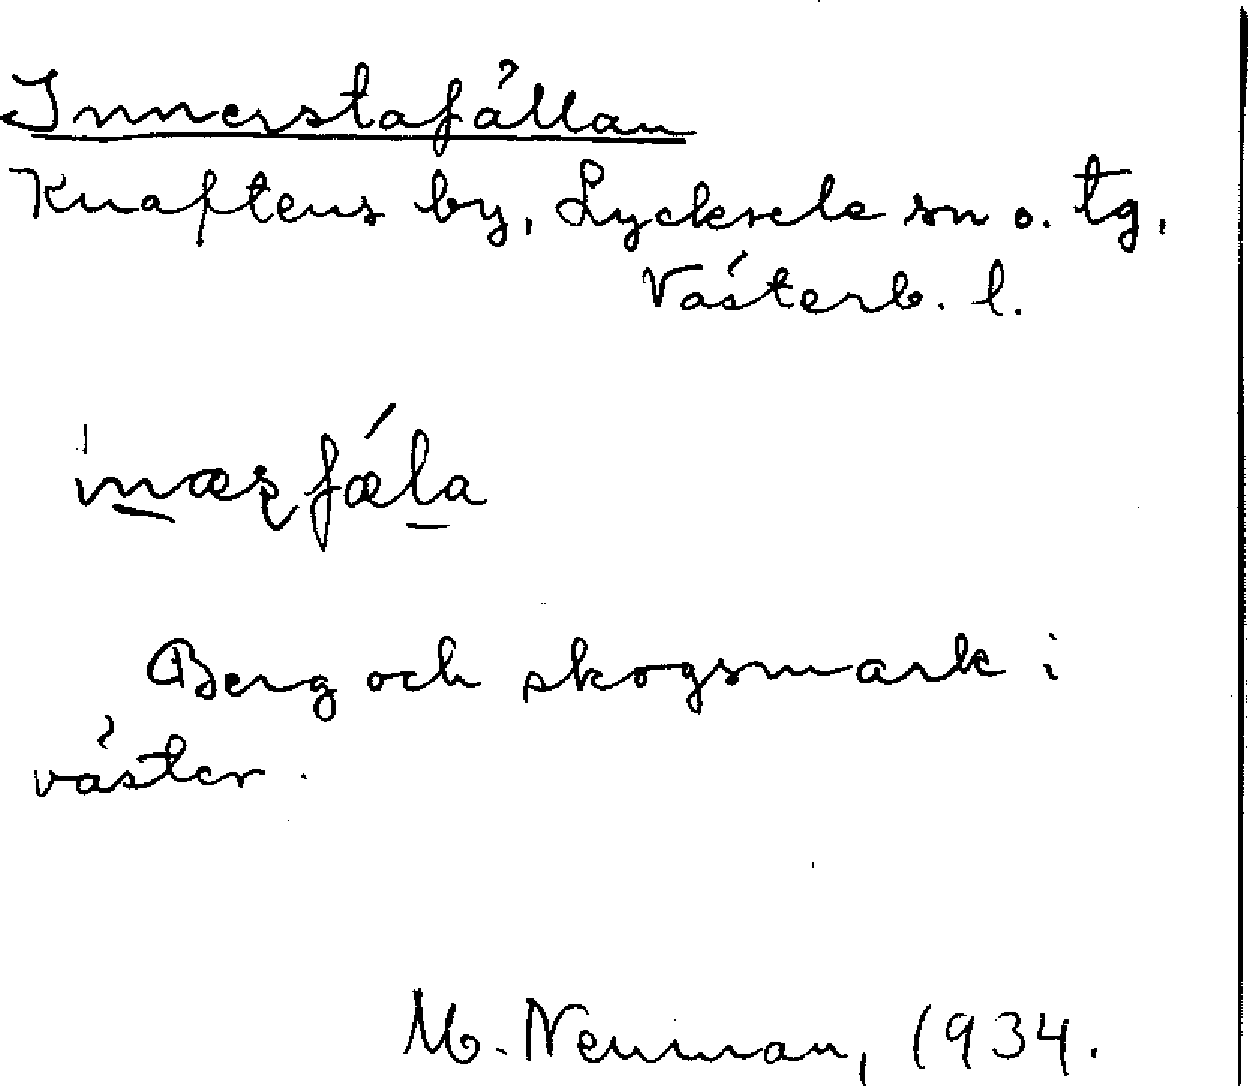 Innerstafällan
Knaftens by, Lycksele sn o. tg,
Västerb. l.
Berg och skogsmark i
väster.
M. Neuman, 1934.